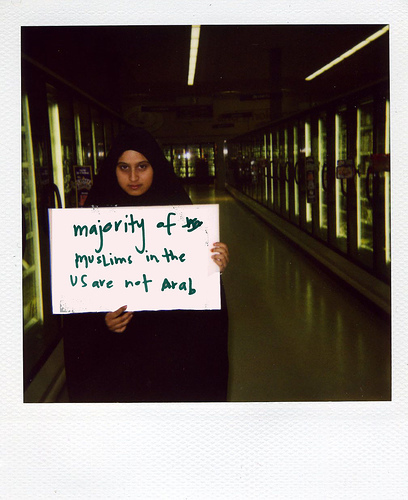 majority of
Muslims in the
US are not Arab